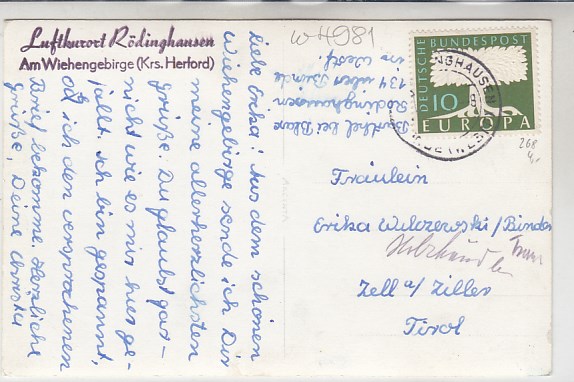 Luftkurort Rödinghausen
Am Wiehengebirge (Krs. Herford)
Liebe Erika! Aus dem schönen
Wiehengebirge sende ich Dir
meine allerherzlichsten
Grüße. Du glaubst gar
nicht wie es mir hier ge-
fällt. Ich bin gespannt,
ob ich den versprochenen
Brief bekomme. Herzliche
Grüße, Deine Christa
Barthel bei Blase
Rödinghausen
134 über Bünde
in Westf.
WH981
DEUTSCHE BUNDESPOST
10
EUROPA
INGHAUSEN
268
Fräulein
Erika Wilczewski/Binder
Zell a/ Ziller
Tirol